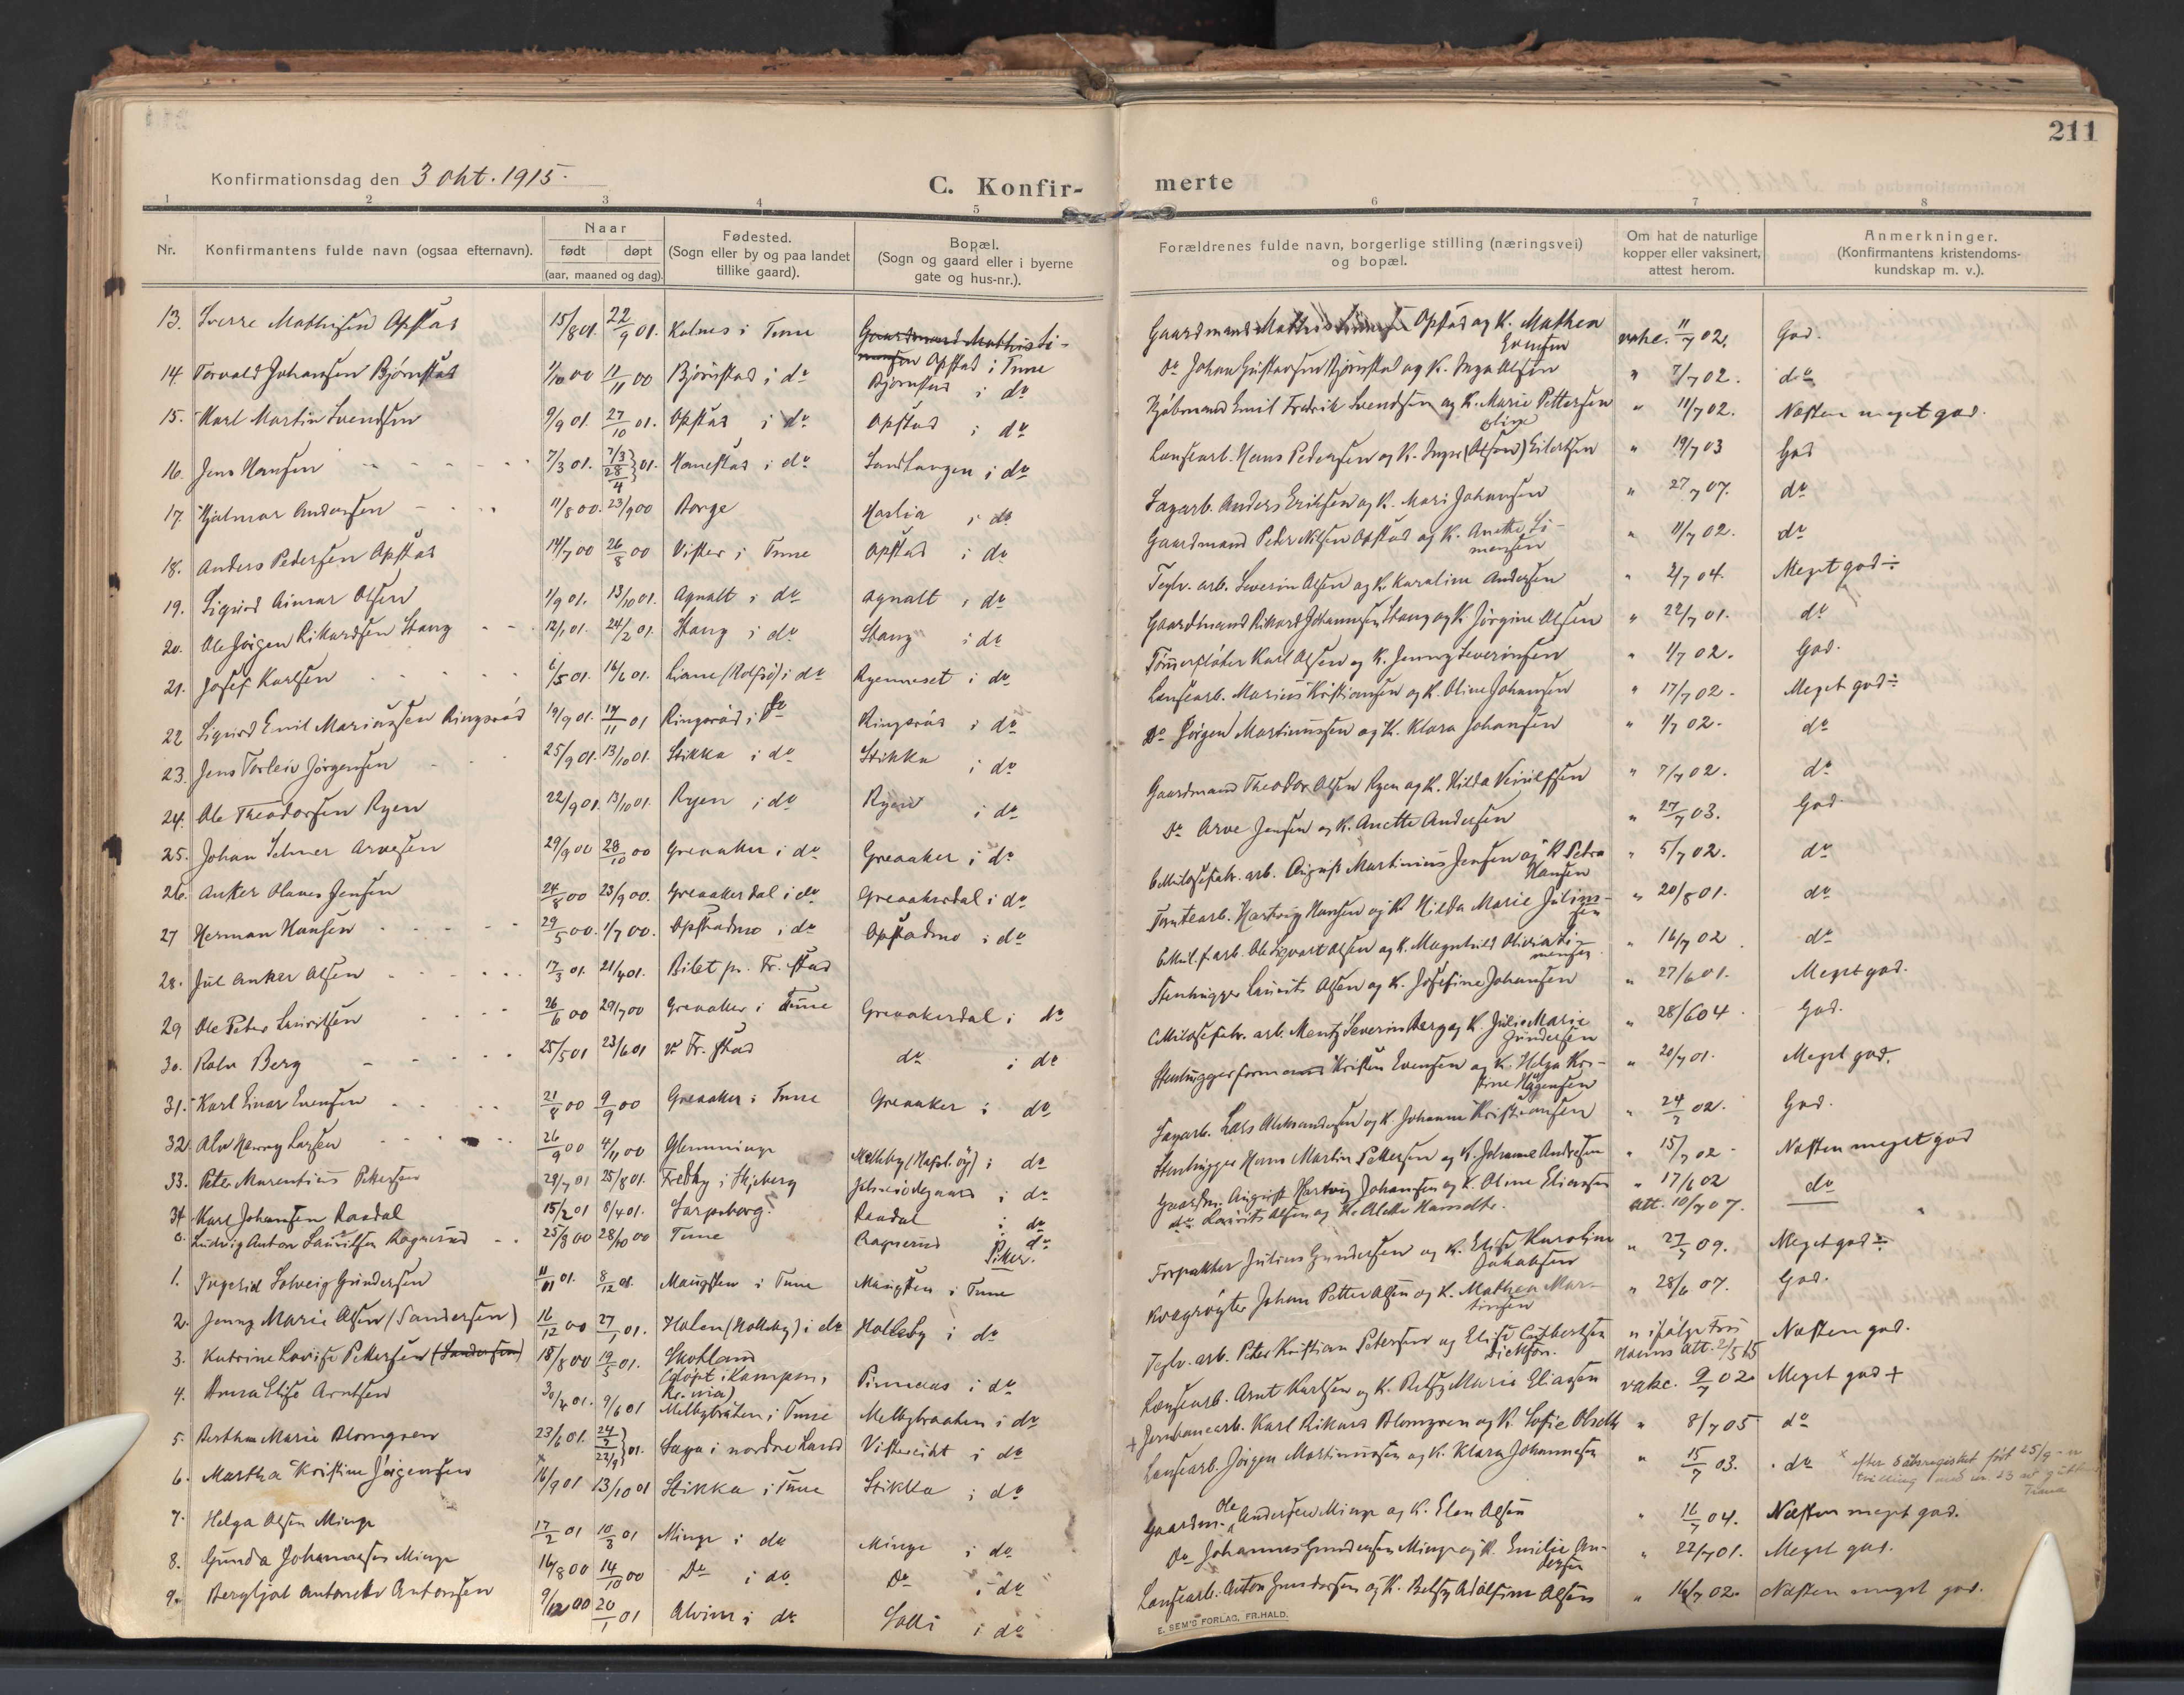 211
Konfirmationsdag den 3 okt. 1915.
C. Konfir-
merte
1 2 3 4 5 6 7 8
Nr.
Konfirmantens fulde navn (ogsaa efternavn).
Naar
født døpt
(aar, maaned og dag).
Fødested.
(Sogn eller by og paa landet
tillike gaard).
Bopæl.
(Sogn og gaard eller i byerne
gate og hus-nr.).
Forældrenes fulde navn, borgerlige stilling (næringsvei)
og bopæl.
Om hat de naturlige
kopper eller vaksinert,
attest herom.
Anmerkninger.
(Konfirmantens kristendoms-
kundskap m. v.).
13. Sverre Mathisen Opstad 15/8 01. 22/9 01. Kalnes i Tune Gaardmand Mathis Si-
monsen Opstad i Tune Gaardmand Mathis Simonsen Opstad og K. Mathea
Evensen vakc. 11/7 02. God.
14. Torvald Johansen Bjørnstad 1/10 00 11/11 00 Bjørnstad i do Bjørnstad i do Do Johan Gustavsen Bjørnstad og K. Inga Olsen " 7/7 02. do
15. Karl Martin Svendsen 9/9 01. 27/10 01. Opstad i do Opstad i do Kjøbmand Emil Fredrik Svendsen og K. Marie Pettersen " 11/7 02. Næsten meget god.
16. Jens Hansen 7/3 01. 7/3 28/4 01. Hanestad i do Sandtangen i do Løsearb. Hans Pedersen og K. Inger (Olsen) Eilertsen " 19/7 03 God
17. Hjalmar Andersen 11/8 00. 23/9 00 Borge Haslia i do Sagarb. Anders Eriksen og K. Mari Johansen " 27/7 07. do
18. Anders Pedersen Opstad 14/7 00 26/8 00 Vister i Tune Opstad i do Gaardmand Peder Nilsen Opstad og K. Anette Si-
monsen " 11/7 02. do
19. Sigurd Aimar Olsen 1/9 01. 13/10 01. Agnalt i do Agnalt i do Teglv. arb. Severin Olsen og K. Karoline Andersen " 2/7 04. Meget god ÷
20. Ole Jørgen Rikardsen Stang 12/1 01. 24/2 01. Stang i do Stang i do Gaardmand Rikard Johannesen Stang og K. Jørgine Olsen " 22/7 01. do
21. Josef Karlsen 6/5 01. 16/6 01. Liane (Rolfsø) i do Ryenneset i do Tømmerfløter Karl Olsen og K. Jenny Severinsen " 1/7 02. God.
22 Sigurd Emil Mariussen Ringsrød 19/9 01. 17/11 01 Ringsrød i do Ringsrød i do Løsearb. Marius Kristiansen og K. Oline Johansen " 17/7 02. Meget god ÷
23. Jens Torleiv Jørgensen 25/9 01. 13/10 01. Stikka i do Stikka i do Do Jørgen Martinussen og K. Klara Johansen " 1/7 02. do
24. Ole Theodorsen Ryen 22/9 01. 13/10 01. Ryen i do Ryen i do Gaardmand Theodor Olsen Ryen og K. Hilda " 7/7 02. do
25. Johan Arvesen 29/9 00 28/10 00 Greaaker i do Greaaker i do Do Arve Jensen og K. Anette Andersen " 27/7 03. God
26. Anker Olaves Jensen 24/8 00 23/9 00. Greaakerdal i do Greaakerdal i do Cellulosefabr. arb. August Martinius Jensen og K. Petra
Hansen " 5/7 02. do
27 Herman Hansen 29/5 00. 1/7 00. Opstadmo i do Opstadmo i do Tomtearb. Hartvig Hansen og K. Hilda Marie Julius-
sen " 20/8 01. do
28. Jul Anker Olsen 17/3 01. 21/4 01. Bilet pr. Fr. stad Cellul. f. arb. Ole Sigvart Olsen og K. Magnhild Olivia Si-
monsen " 16/7 02 do
29 Ole Peter Lauritsen 26/6 00 29/7 00 Greaaker i Tune Greaakerdal i do Stenhugger Laurits Olsen og K. Josefine Johansen " 27/6 01. Meget god.
30. Rolv Berg 25/5 01 23/6 01 v. Fr. stad do i do Cellulosefabr. arb. Mentz Severin Berg og K. Julie Marie
Gundersen " 28/6 04 God.
31. Karl Einar Evensen 21/8 00 9/9 00 Greaaker i Tune Greaaker i do Stenhuggerformand Kristen Evensen og K. Helga Kri-
stine Hågensen " 20/7 01. Meget god.
32. Alv Henry Larsen 26/9 00 4/11 00 Glemminge Melleby (Hafsl. øy) i do Sagarb. Lars Aleksandersen og K. Johanne Kristiansen " 24/7 02. God.
33. Peter Marentius Pettersen 28/7 01 25/8 01. Fredby i Skjeberg i do Stenhugger Hans Martin Pettersen og K. Johanne Andresen " 15/7 02 Næsten meget god
34 Karl Johansen Raadal 15/2 01 8/4 01. Sarpsborg. Raadal i do Gaardm. August Hartvig Johansen og K. Oline Eliassen " 17/6 02 do
0. Ludvig Anton Lauritsen Ragnerød 25/8 00 28/10 00 Tune Ragnerød i do do Laurits Olsen og K. Alette Hansdtr. att. 10/7 07. "
Piker.
1. Ingerid Solveig Gundersen 11/01 01. 8/12 01. Maugsten i Tune Maugsten i Tune Forpakter Julius Gundersen og K. Elise Karoline
Johansen " 27/7 09. Meget god ÷
2. Jenny Marie Olsen (Sandersen) 16/12 00 27/1 01. Holen (Holleby) i do Holleby i do Kvægrøgter Johan Petter Olsen og K. Mathea Mar-
tinsen " 28/6 07. God.
3. Katrine Lovise Pettersen (Sandersen) 18/8 00 19/5 01. Skotland
(døpt i Kampen,
Kr.ania) Pinneaas i do Teglv. arb. Peter Kristian Petersen og Elise Cuthbertsen
Dickson. " ifølge Frøi
att. 2/5 15 Næsten god.
4. Anna Elise Arntsen 30/4 01. 9/6 01 Melbybråten i Tune Melbybraaten i do Løsearb. Arnt Karlsen og K. Betsy Marie Eliassen vakc. 9/7 02 Meget god +
5. Bertha Marie Blomgren 23/6 01. 24/7 22/9 01. Saga i nordre Land Vistereiet i do + Jernbanearb. Karl Rikard Blomgren og K. Sofie " 8/7 05 do
6. Martha Kristine Jørgensen × 16/9 01 13/10 01 Stikka i Tune Stikka i do Løsearb. Jørgen Martinussen og K. Klara Johannesen " 15/7 03. do × efter dåbsregistret født 25/9 - er
tvilling med nr. 23 av guttene
7. Helga Olsen Minge 17/2 01 10/3 01 Minge i do Minge i do Gaardm. Ole Andersen Minge og K. Elen Olsen " 16/7 04. Næsten meget god.
8. Gunda Johannesen Minge 16/8 00 14/10 00 Do i do Do i do Do Johannes Gundersen Minge og K. Emilie An-
dersen " 22/7 01. Meget god.
9. Bergljot Antonette Antonsen 9/12 00 20/1 01 Alvim i do Solli i do Løsearb. Anton Gundersen og K. Betsy Adolfine Olsen " 16/7 02. Næsten meget god.
E. SEM'S FORLAG, FR.HALD.